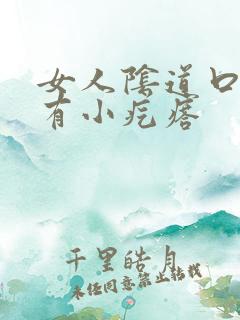 女人陰道口
有小疙瘩
千里皓月
未经同意禁止转载